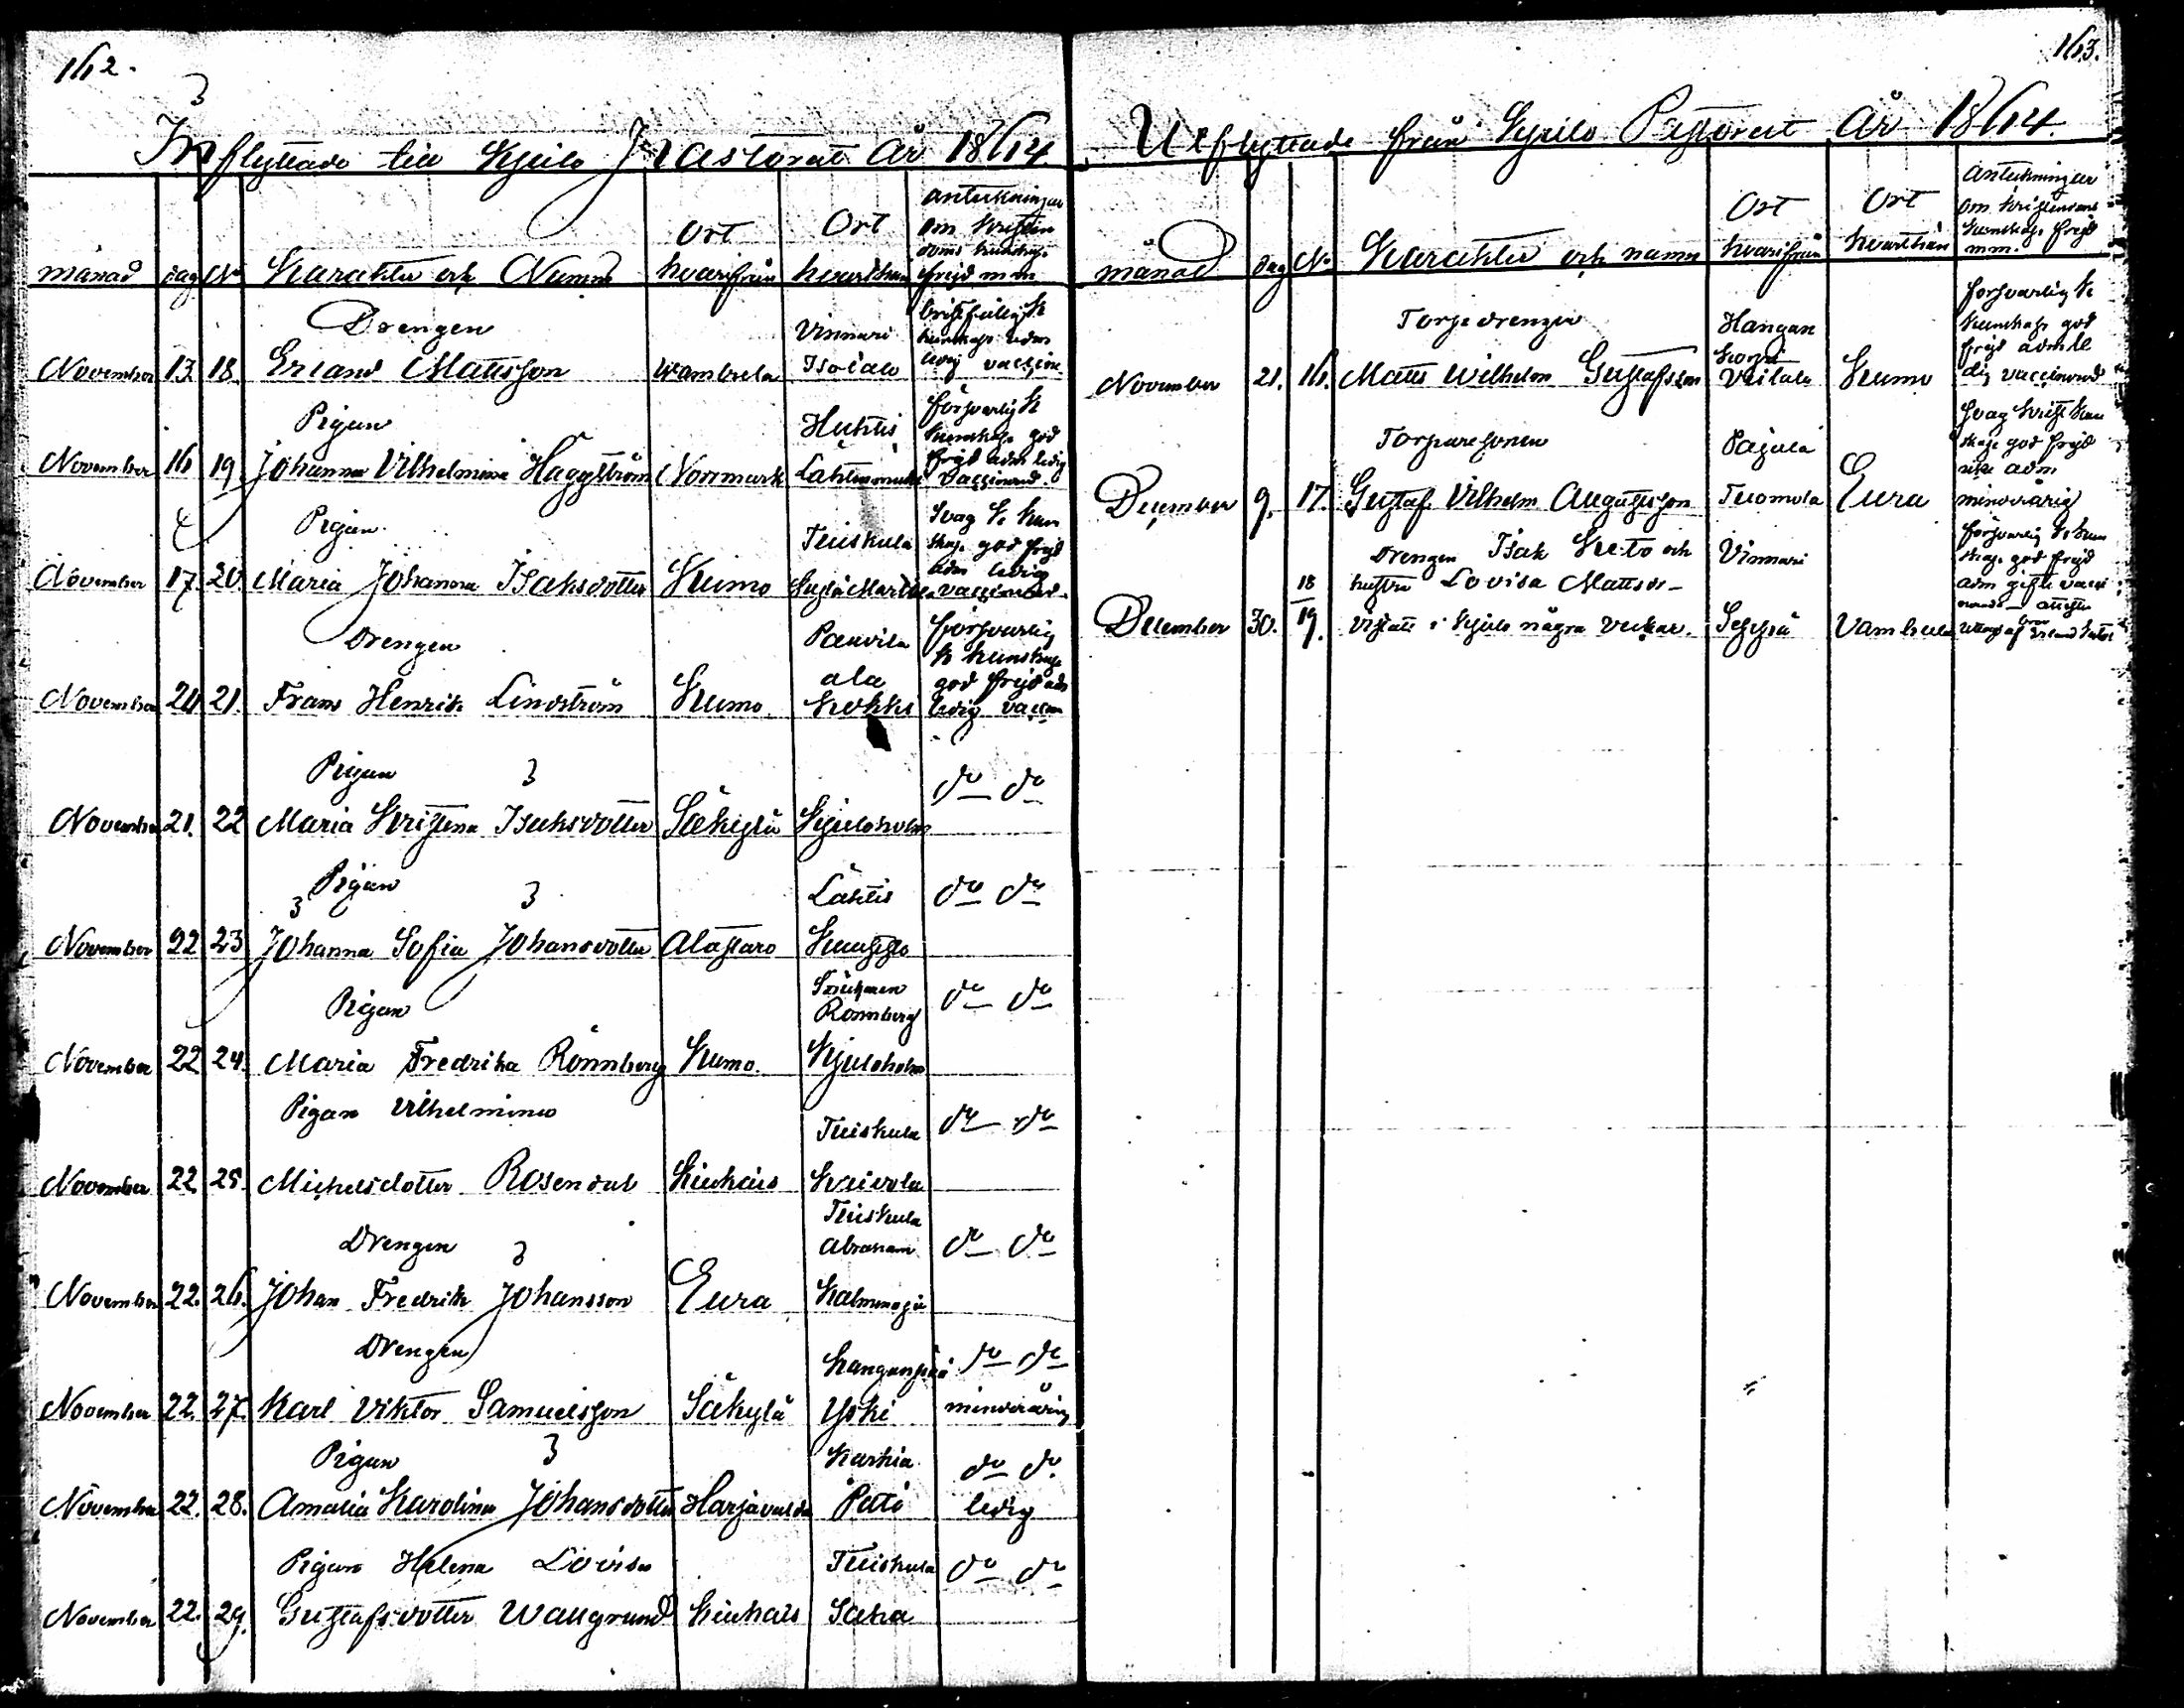 162.
Inflyttade till Kjulo Pastorat År 1864.
månad dag No Karakter och Namn Ort hvarifrån Ort hvarthän Anteckningar om kristendoms kunskap frejd m.m.
Drengen Vinnari
November 13. 18. Erland Mattsson Wambula Isotalo ledig vaccin.
Pigan Huhtis försvarlig K kunskap god
November 16 19. Johanna Vilhelmina Häggström Norrmark frejd adm ledig vaccinerad.
Pigan Tuiskula Svag K kunskap god frejd
November 17. 20. Maria Johanna Isaksdotter Kumo adm ledig vaccinerad.
Drengen Paavila försvarlig K kunskap
November 20. 21. Frans Henrik Lindström Kumo. ala Kokki god frejd adm ledig vaccin
Pigan do do
November 21. 22 Maria Kristina Isaksdotter Säkylä Kjuloholm
Pigan Lähtis do do
November 22 23 Johanna Sofia Johansdotter Alastaro
Pigan Rönnberg do do
November 22 24. Maria Fredrika Rönnberg Kumo. Kjuloholm
Pigan Vilhelmina Tuiskula do do
November 22. 25. Michelsdotter Rosendal Kiukais Knivola
Drengen Tuiskula Abraham do do
November 22. 26. Johan Fredrik Johansson Eura Kalminoja
Drengen Kanganpää do do
November 22. 27. Karl Viktor Samuelsson Säkylä Yski minderårig
Pigan Karhia do do
November 22. 28. Amalia Karolina Johansdotter Harjavalda ledig
Pigan Helena Lovisa Tuiskula do do
November 22. 29. Gustafsdotter Wallgrund Kiukais
163.
Utflyttade från Kjulo Pastorat År 1864.
månad dag No Karakter och namn Ort hvarifrån Ort hvarthän Anteckningar om kristendoms kunskap frejd m.m.
Torpedrengen försvarlig K kunskap god
November 21. 16. Matts Wilhelm Gustafsson Kumo frejd adm ledig vaccinerad
Torparesonen Pajula Svag Krist kunskap god frejd
December 9. 17. Gustaf Vilhelm Augustsson Tuomola Eura icke adm minderårig
Drengen Isak Keto och Vinnari försvarlig K kunskap god frejd
18 hustru Lovisa Mattsdr adm gifte vaccinerade
December 30. 19. vistats i Kjulo några veckor. Seppä Vambula